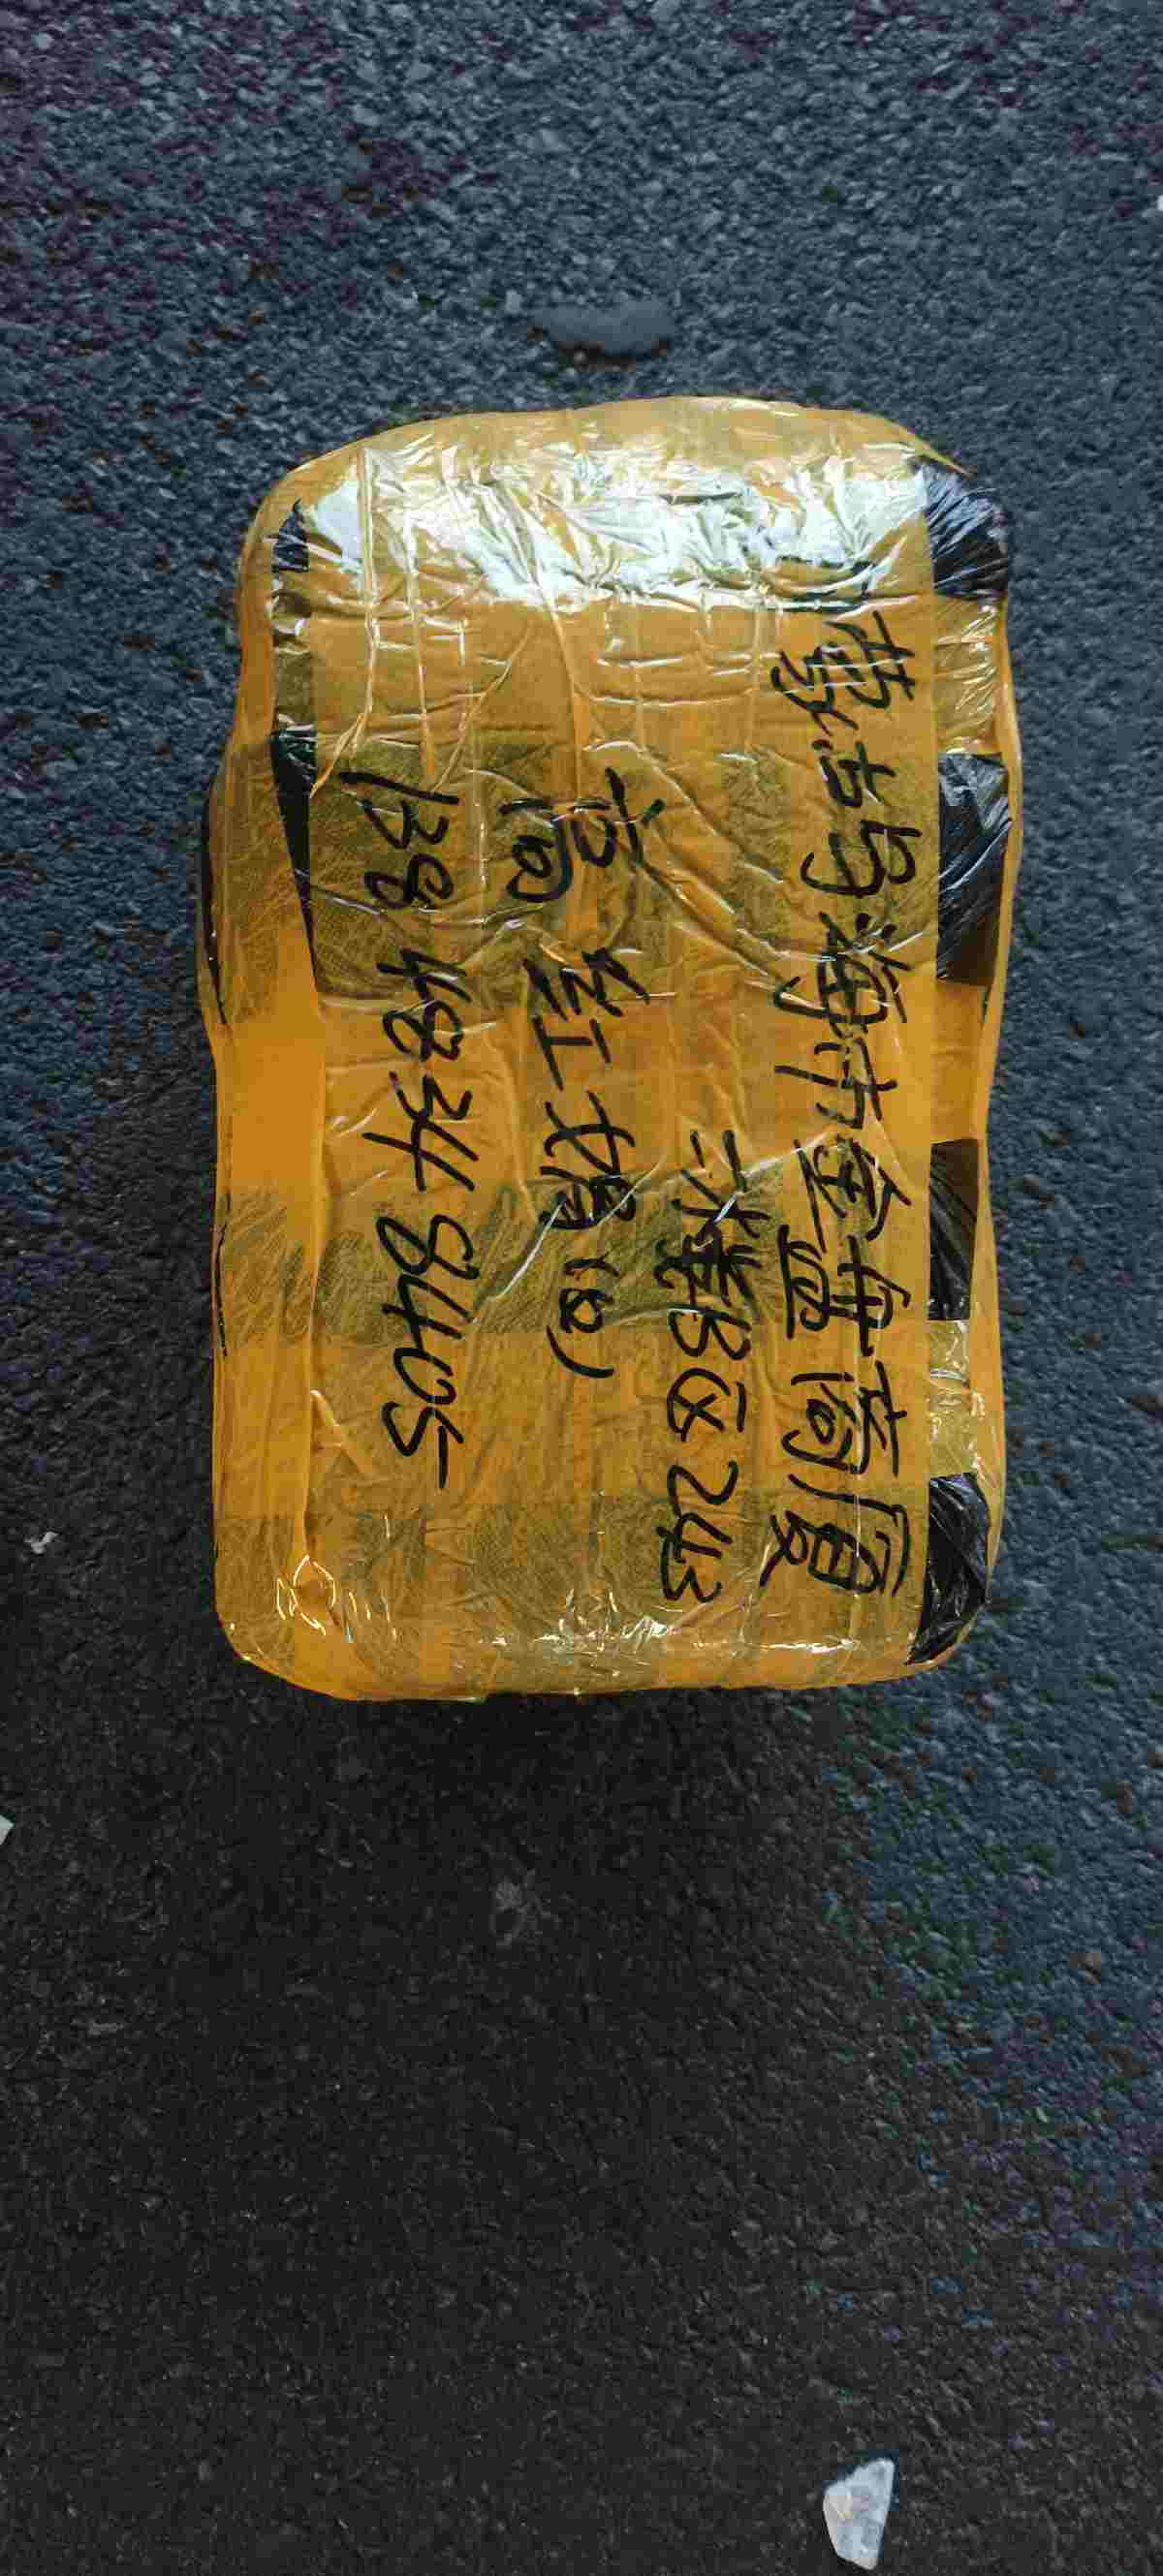 蒙古乌海市金盛商厦
二楼B区243
高红梅(收)
138 4834 8405